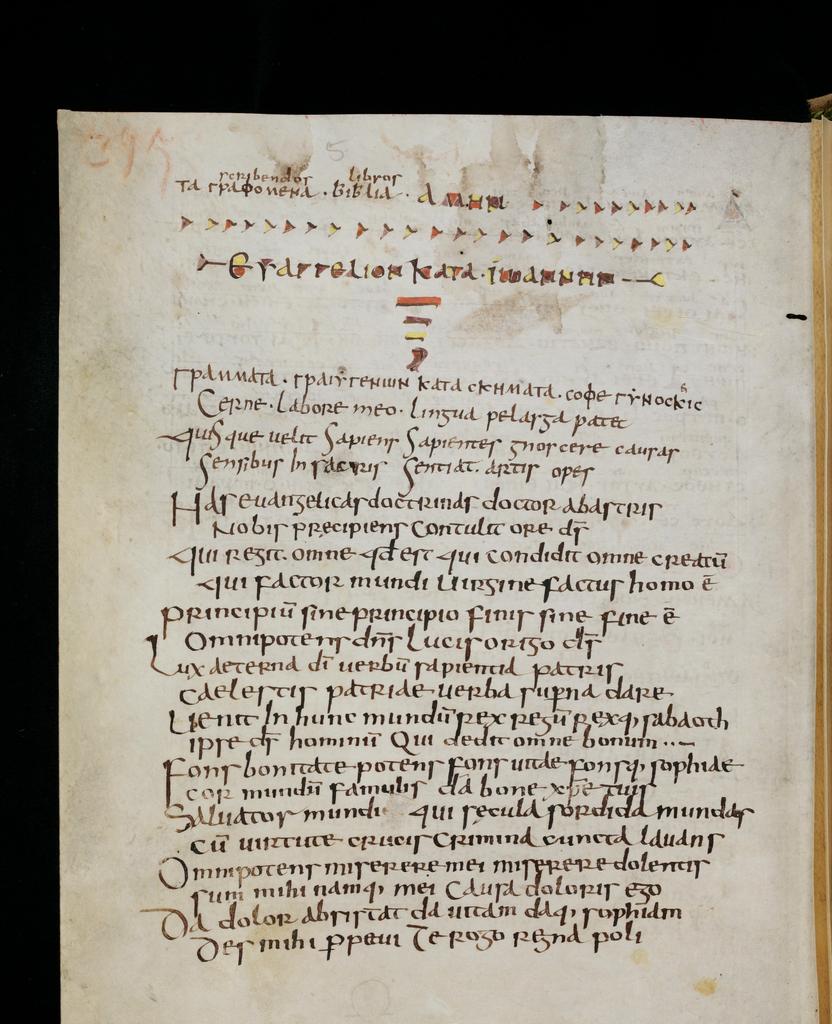 395
scribendos libros
ΤΑ ΓΡΑΦΟΜΕΝΑ · ΒΙΒΛΙΑ · ΑΜΗΝ
ΕΥΑΓΓΕΛΙΟΝ ΚΑΤΑ · ΙΩΑΝΝΗΝ
ΓΡΑΜΜΑΤΑ · ΚΑΤΑ СΚΗΜΑΤΑ · СΟΦΕ
Cerne · Labore meo · Lingua pelasga patet
Quisque uelit Sapiens Sapientes gnoscere causas
Sensibus In sacris Sentiat · artis opes
Has euangelicas doctrinas doctor ab astris
Nobis precipiens Contulit ore ds̄
Qui regit · omne qd est qui condidit omne creatū
qui factor mundi Uirgine factus homo ē
Principiū sine principio finis sine fine ē
Omnipotens dn̄s Lucis origo ds̄
Lux aeterna dī uerbū sapientia patris
Caelestis patriae uerba sup̄na dare
Uenit In hunc mundū rex regū rexq; sabaoth
ipse ds̄ hominū Qui dedit omne bonum
Fons bonitate potens fons uitae fonsq; sophiae
cor mundū famulis da bone xp̄e tuis
Saluator mundi qui secula sordida mundas
Cū uirtute crucis Crimina cuncta lauans
Omnipotens miserere mei miserere dolentis
sum mihi namq; mei Causa doloris ego
Da dolor absistat da uitam daq; sophiam
Des mihi p̄petui Te rogo regna poli